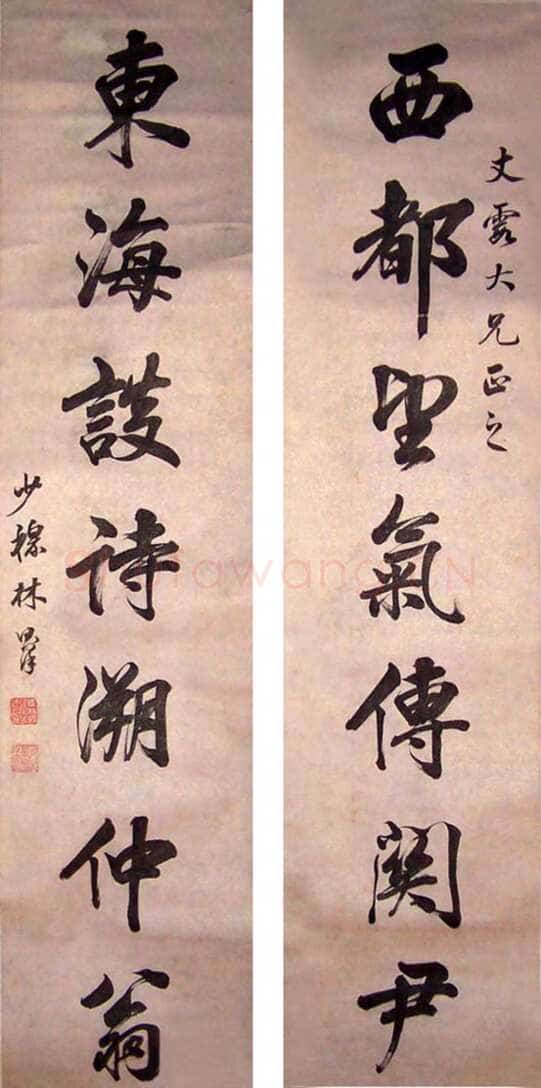 文霞大兄正之
西都望氣傳關尹
東海談詩溯仲翁
少穆林則徐